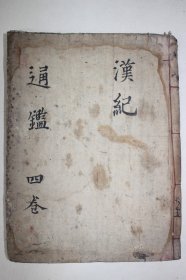 漢紀
通鑑 四卷